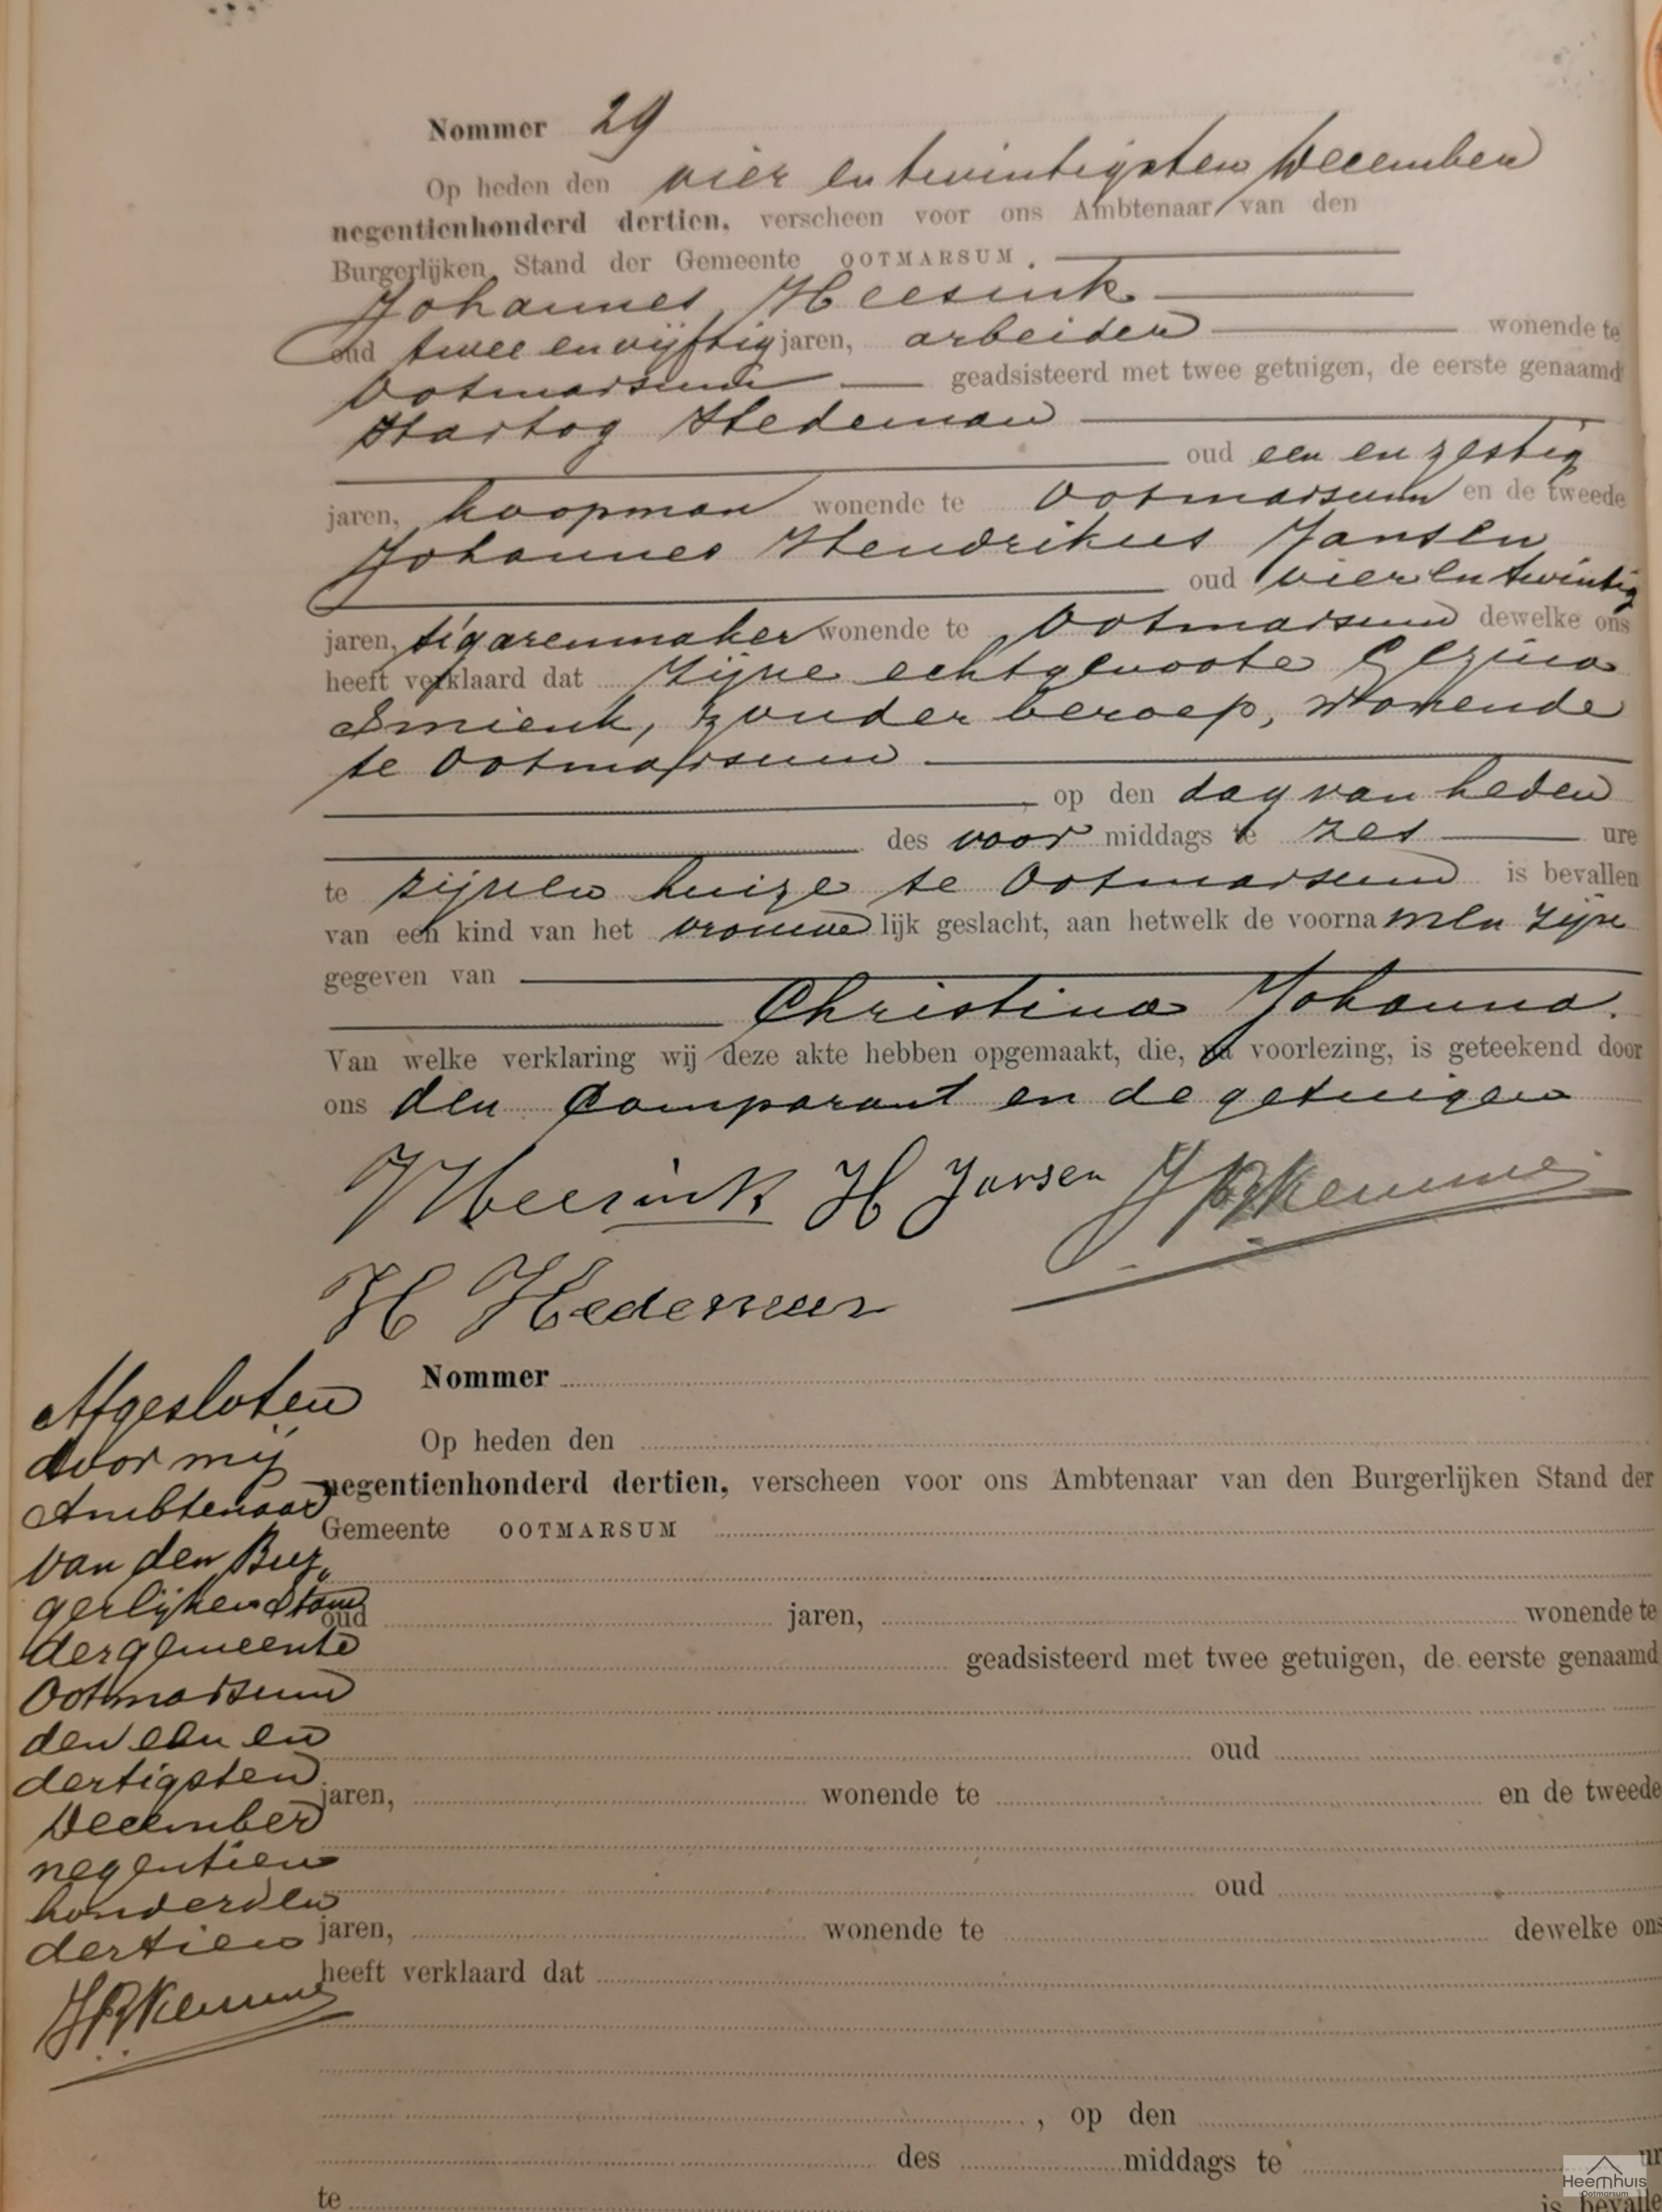 Nommer 29
Op heden den vier en twintigsten December
negentienhonderd dertien, verscheen voor ons Ambtenaar van den
Burgerlijken Stand der Gemeente OOTMARSUM.
Johannes Heesink
oud twee en vijftig jaren, arbeider wonende te
Ootmarsum geadsisteerd met twee getuigen, de eerste genaamd
Hartog Hedeman
oud een en zestig
jaren, koopman wonende te Ootmarsum en de tweede
Johannes Hendrikus Jansen
oud vier en twintig
jaren, sigarenmaker wonende te Ootmarsum dewelke ons
heeft verklaard dat zijne echtgenoote Gezina
Smienk, zonder beroep, wonende
te Ootmarsum
, op den dag van heden
des voor middags te zes ure
te zijnen huize te Ootmarsum is bevallen
van een kind van het vrouwelijk geslacht, aan hetwelk de voornamen zijn
gegeven van
Christina Johanna.
Van welke verklaring wij deze akte hebben opgemaakt, die, na voorlezing, is geteekend door
ons den Comparant en de getuigen
J Heesink H Jansen
H Hedeman
Nommer
Op heden den
negentienhonderd dertien, verscheen voor ons Ambtenaar van den Burgerlijken Stand der
Gemeente OOTMARSUM
oud jaren, wonende te
geadsisteerd met twee getuigen, de eerste genaamd
oud
jaren, wonende te en de tweede
oud
jaren, wonende te dewelke ons
heeft verklaard dat
, op den
des middags te ur
te is bevalle
Afgesloten
door mij
Ambtenaar
van den Bur„
gerlijken Stand
der gemeente
Ootmarsum
den een en
dertigsten
December
negentien
honderd en
dertien
Heemhuis
Ootmarsum